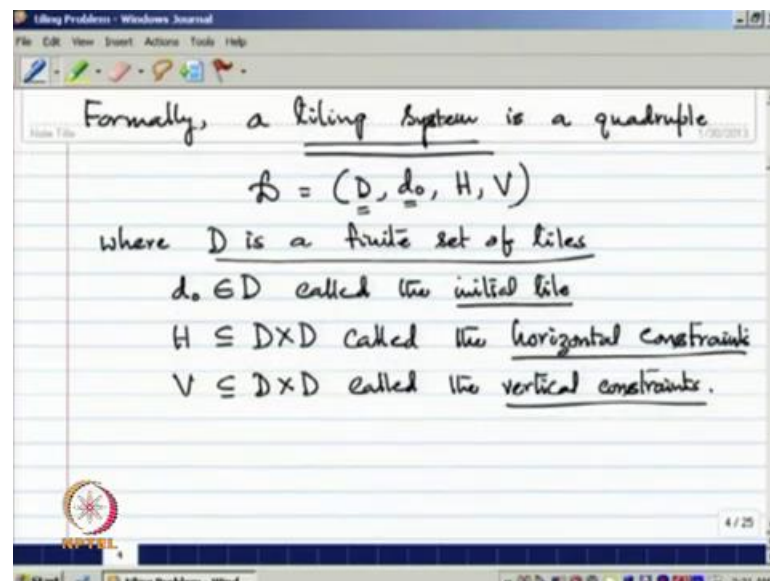 tiling Problem - Windows Journal
File Edit View Insert Actions Tools Help
Note Title
1/30/2013
Formally, a tiling system is a quadruple
𝒟 = (D, d₀, H, V)
where D is a finite set of tiles
d₀ ∈ D called the initial tile
H ⊆ D×D called the horizontal constraints
V ⊆ D×D called the vertical constraints.
NPTEL
4
4 / 25